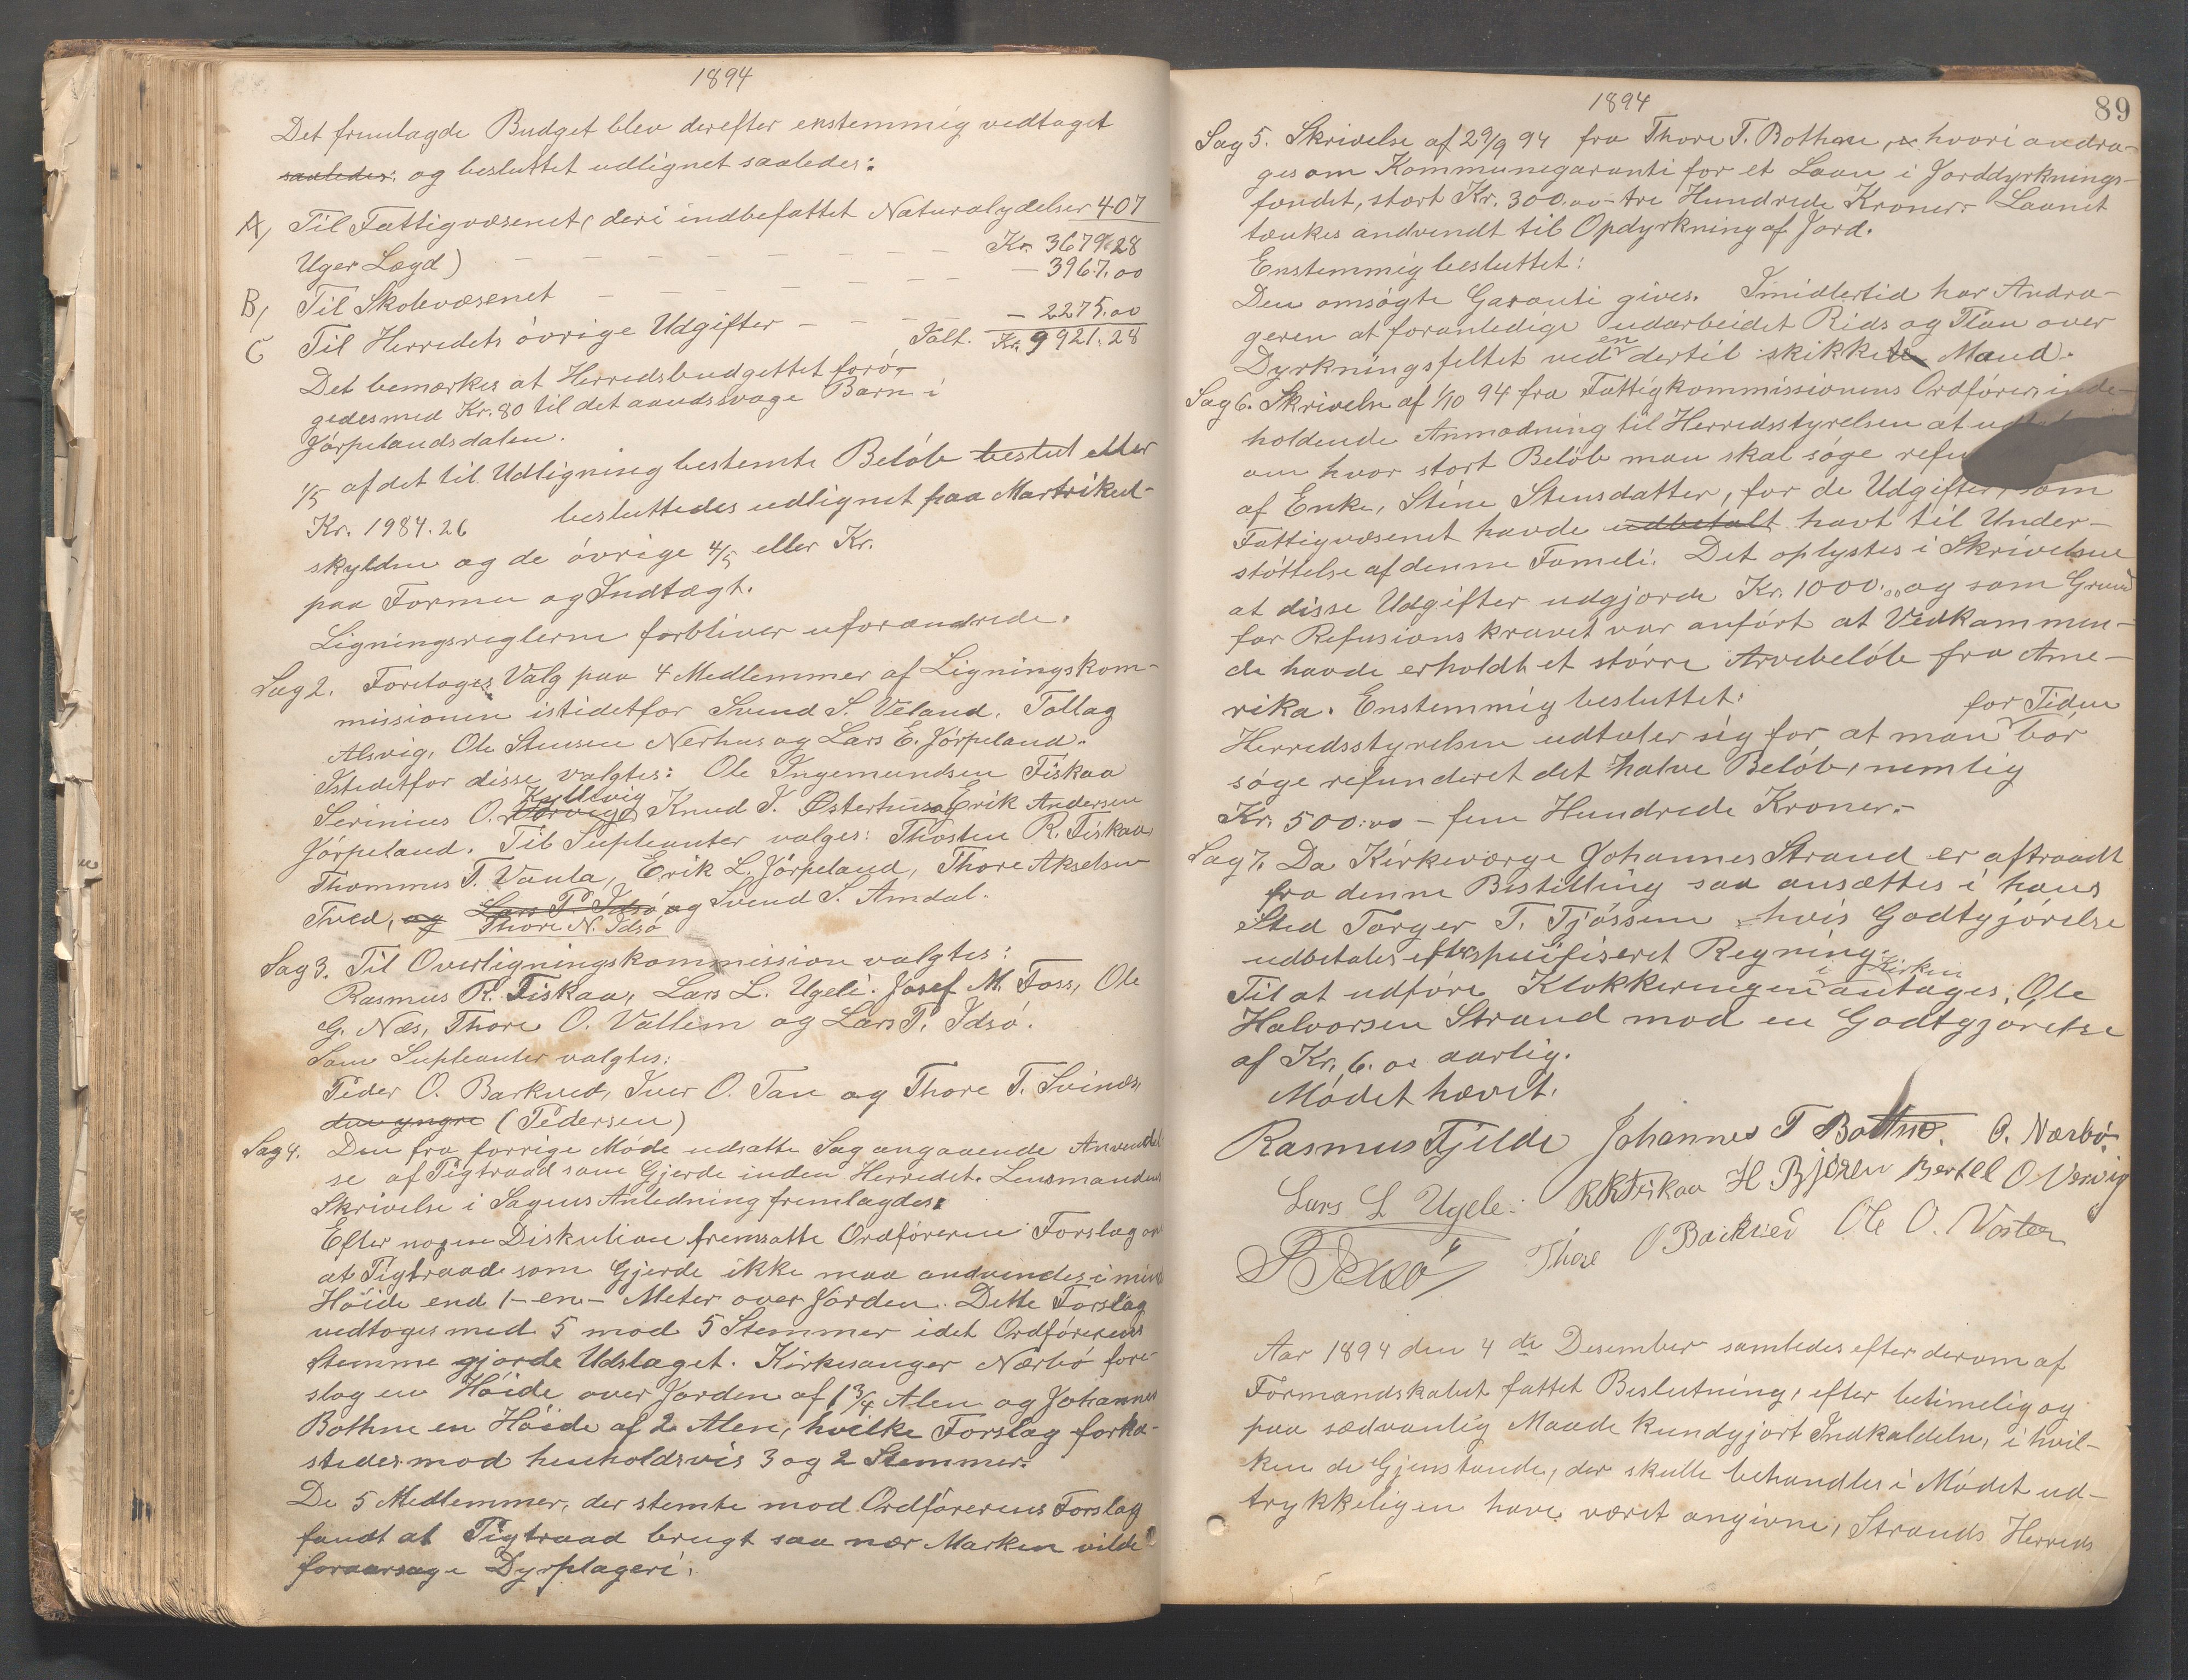 1894
Det fremlagde Budget blev derefter enstemmig vedtaget
saaledes: og besluttet udlignet saaledes:
A, Til Fattigvæsenet, (deri indbefattet Naturalydelser 407
Uger Lægd) — — — — — — — Kr. 3679.28
B, Til Skolevæsenet — — — — — — — 3967.00
C Til Herredets øvrige Udgifter — — — — — 2275.00
Ialt. Kr. 9921.28
Det bemærkes at Herredsbudgettet forø-
gedes med Kr. 80 til det aandssvage Barn i
Jørpelandsdalen.
1/5 af det til Udligning bestemte Beløb beslut eller
Kr. 1984.26 besluttedes udlignet paa Martrikul-
skylden og de øvrige 4/5 eller Kr.
paa Formue og Indtægt.
Ligningsreglerne forbliver uforandrede.
Sag 2. Foretoges Valg paa 4 Medlemmer af Ligningskom-
missionen istedetfor Svend S. Veland, Tollag
Alsvig, Ole Stensen Nerhus og Lars E. Jørpeland.
Istedetfor disse valgtes: Ole Ingemundsen Fiskaa
Serinius O. Kyllevig Knud I. Østerhus og Erik Andersen
Jørpeland. Til Supleanter valges: Thosten R. Fiskaa,
Thommes T. Vaula, Erik L. Jørpeland, Thore Akselsen
Tved, og Lars P. Idsø og Svend S. Amdal.
Thore N. Idsø
Sag 3. Til Overligningskommission valgtes:
Rasmus R. Fiskaa, Lars L. Ugeli. Josef M. Foss, Ole
G. Næs, Thore O. Vallem og Lars P. Idsø.
Som Supleanter valgtes:
Peder O. Barkved, Iver O. Tau og Thore T. Svinæs,
den yngre (Pedersen)
Sag 4. Den fra forrige Møde udsatte Sag angaaende Anvendel
se af Pigtraad som Gjerde inden Herredet. Lensmandens
Skrivelse i Sagens Anledning fremlagdes.
Efter nogen Diskution fremsatte Ordføreren Forslag om
at Pigtraad som Gjerde ikke maa andvendes i mind
Høide end 1-en- Meter over Jorden. Dette Forslag
vedtoges med 5 mod 5 Stemmer idet Ordførerens
Stemme gjorde Udslaget. Kirkesanger Nærbø fore-
slog en Høide over Jorden af 1 3/4 Alen og Johannes
Bothne en Høide af 2 Alen, hvilke Forslag forka-
stedes mod henholdsvis 3 og 2 Stemmer.
De 5 Medlemmer, der stemte mod Ordførerens Forslag
fandt at Pigtraad brugt saa nær Marken vilde
foraarsage Dyrplageri.
1894
89
Sag 5. Skrivelse af 29/9 94 fra Thore T. Bothne, hvori andra-
ges om Kommunegaranti for et Laan i Jorddyrknings-
fondet, stort Kr. 300.00 - tre Hundrede Kroner - Laanet
tænkes andvendt til Opdyrkning af Jord.
Enstemmig besluttet:
Den omsøgte Garanti gives. Imidlertid har Andra-
geren at foranledige udarbeidet Rids og Plan over
Dyrkningsfeltet ved en dertil skikket Mand.
Sag 6. Skrivelse af 1/10 94 fra Fattigkommissionens Ordfører, inde-
holdende Anmodning til Herredsstyrelsen at udt
om hvor stort Beløb man skal søge refu
af Enke, Stine Stensdatter, for de Udgifter, som
Fattigvæsenet havde udbetalt havt til Under-
støttelse af denne Fameli. Det oplystes i Skrivelsen
at disse Udgifter udgjorde Kr. 1000.00 og som Grund
for Refusionskravet var anført at Vedkommen-
de havde erholdt et større Arvebeløb fra Ame-
rika. Enstemmig besluttet:
Herredsstyrelsen udtaler sig for at man for Tiden bør
søge refunderet det halve Beløb, nemlig
Kr. 500.00 - fem Hundrede Kroner.-
Sag 7. Da Kirkeværge Johannes Strand er aftraadt
fra denne Bestilling saa ansættes i hans
Sted Torger T. Tjøssem hvis Godtgjørelse
udbetales efter spesifiseret Regning.
Til at udføre Klokkeringen i Kirken antages, Ole
Halvorsen Strand mod en Godtgjørelse
af Kr. 6.00 aarlig.
Mødet hævet.
Rasmus Fjelde Johannes T Bothne. O. Nærbø
Lars L Ugele. R R Fiskaa H Bjøren Bertel O Vervig
Thore O Barkved Ole O. Vasten
Aar 1894 den 4de Desember samledes efter derom af
Formandskabet fattet Beslutning, efter betimelig og
paa sædvanlig Maade kundgjort Indkaldelse, i hvil-
ken de Gjenstande, der skulle behandles i Mødet ud-
trykkeligen have været angivne, Strands Herreds